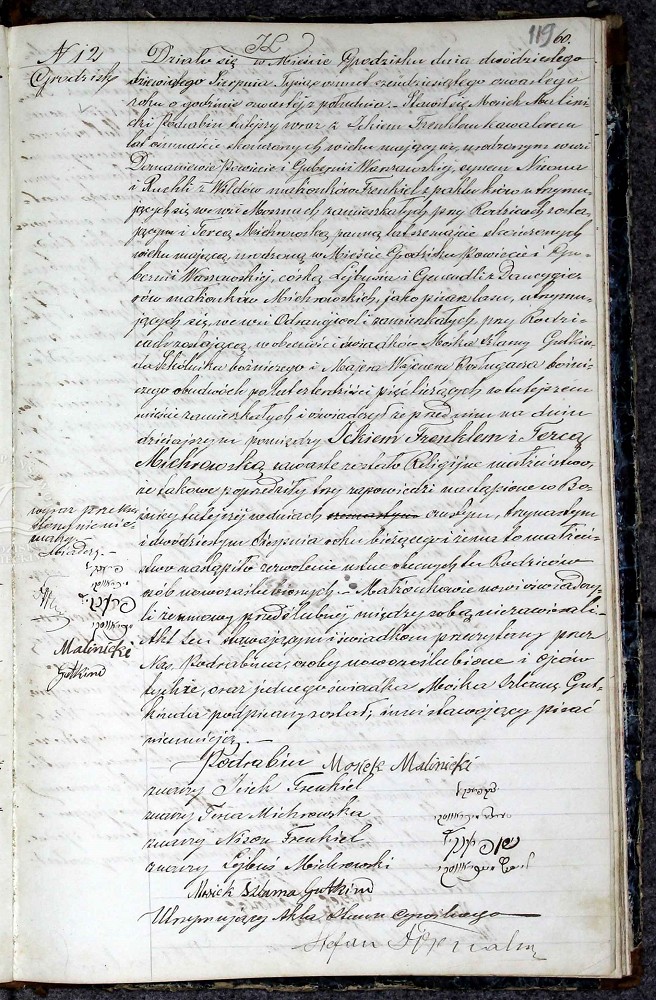 119 60.
N 12
Grodzisk
Działo się w Mieście Grodzisku dnia dwódziestego
dziewiątego Sierpnia Tysiąc ośmset sześdziesiątego czwartego
roku o godzinie czwartej z południa. Stawił się Mosiek Malini-
cki Podrabin tutejszy wraz z Ickiem Frenklem kawalerem
lat ośmnaście skończonych wieku mającym, urodzonym we wsi
Domaniewie Powiecie i Gubernii Warszawskiej, synem Nisona
i Ruchli z Weldów małżonków Frenkiel z pachtu krów utrzymu-
jących się we wsi zamieszkałych przy Rodzicach zosta-
jącym i Tercą Michrowską panną lat szesnaście skończonych
wieku mającą, urodzoną w Mieście Grodzisku Powiecie i Gu-
bernii Warszawskiej, córką Lejbusia i Gendli z Dancygie-
rów małżonków Michrowskich, jako pisarz lasu, utrzymu-
jących się, we wsi zamieszkałych, przy Rodzi-
cach zostającą, w obecności świadków Mośka Szlamy Gutkin-
da Szkolnika bożniczego i Majera bożni-
czego obudwóch po lat czterdzieści pięć liczących w tutejszem
mieście zamieszkałych i oświadczył że przed nim na dniu
dzisiejszym pomiędzy Ickiem Frenklem i Tercą
Michrowską zawarte zostało Religijne małżeństwo,
że takowe poprzedziły trzy zapowiedzi nastąpione w Bo-
żnicy tutejszej w dniach szóstym, trzynastym
i dwódziestym Sierpnia roku bieżącego i że na to małżeń-
stwo nastąpiło zezwolenie ustne obecnych tu Rodziców
osób nowozaślubionych. Małżonkowie nowi oświadczy-
li że umowy przedślubnej między sobą nie zawierali.
Akt ten stawającym i świadkom przeczytany przez
Nas, Podrabina, osoby nowozaślubione i Ojców
tychże, oraz jednego świadka Mośka Szlamę Gut-
kinda podpisany został, inni stawający pisać
nieumieją.
wyraz przekre-
ślony nie nie-
ważny
Malinicki
Gutkind
Podrabin Mosiek Malinicki
znaczy Icick Frenkiel
znaczy Terca Michrowska
znaczy Nison Frenkiel
znaczy Lejbuś Michrowski
Mosiek Szlama Gutkind
Utrzymujący Akta Stanu Cywilnego
Stefan